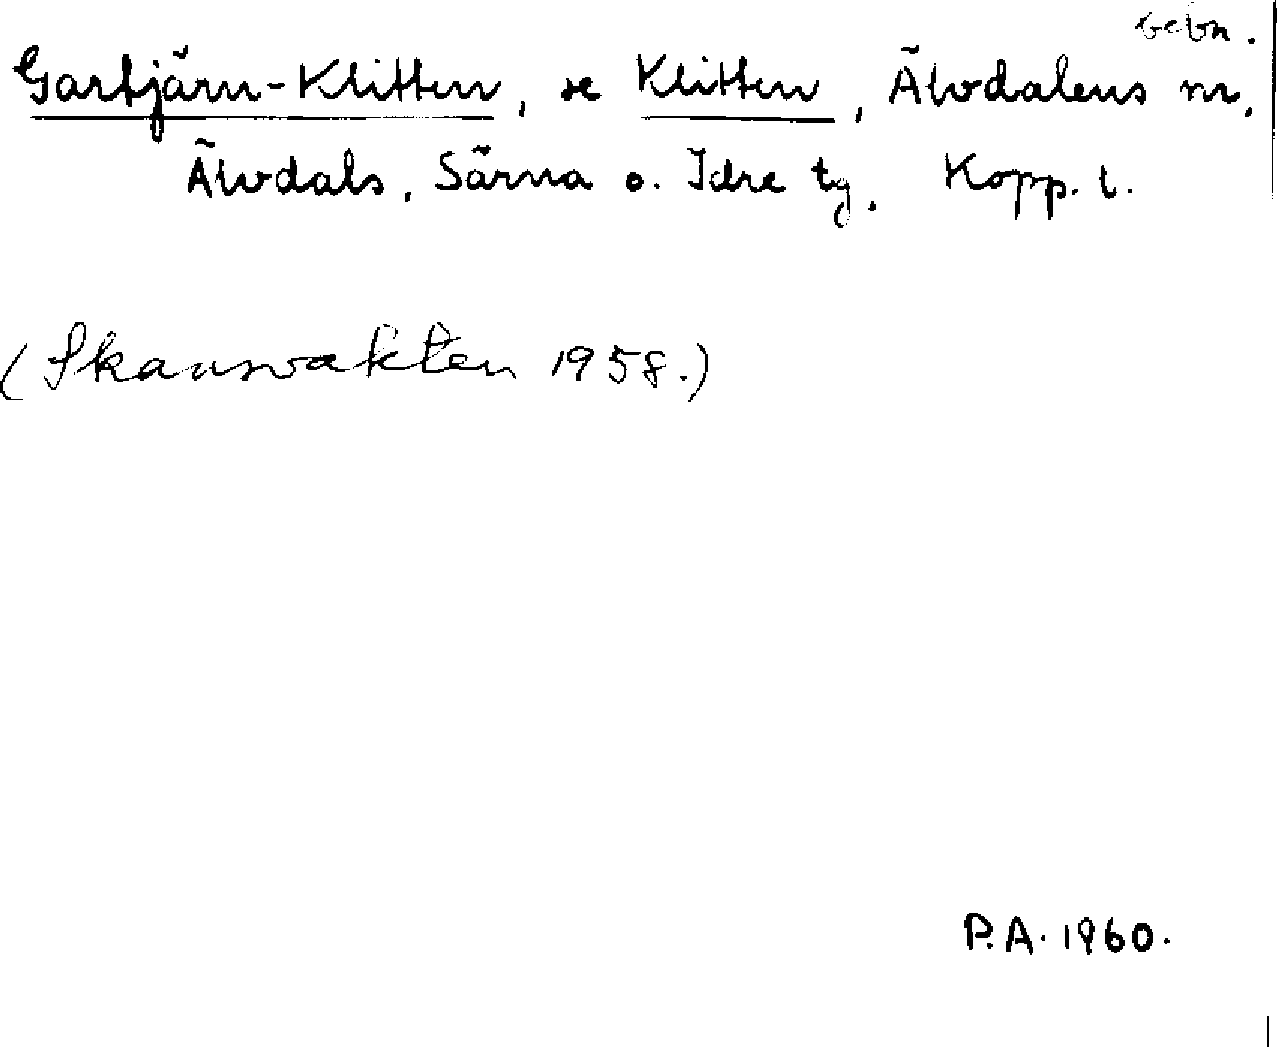 bebn.
Gartjärn-Klitten, se Klitten, Älvdalens sn,
Älvdals, Särna o. Idre tg. Kopp. l.
(Skansvakten 1958.)
P.A. 1960.